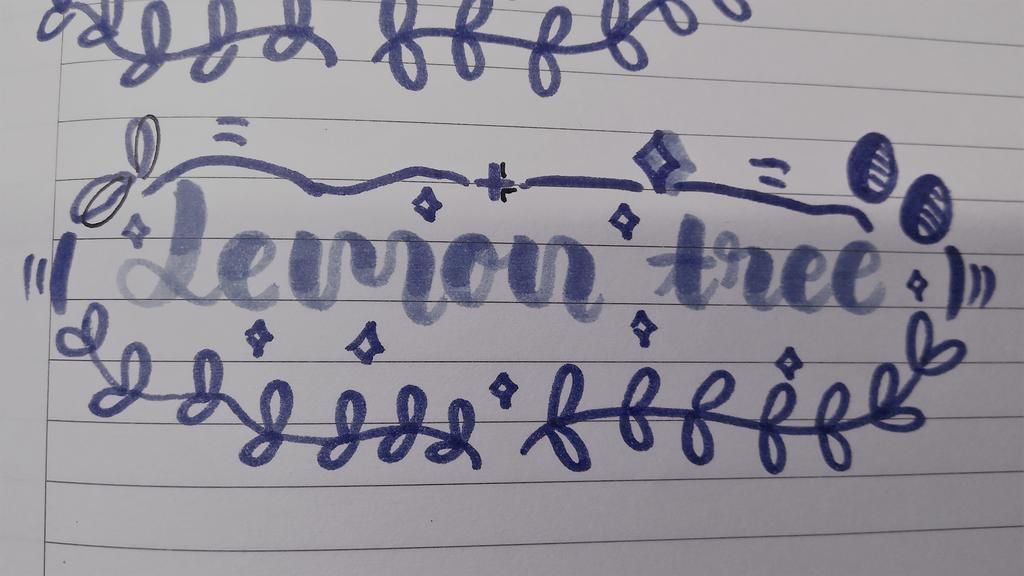 Lemon tree